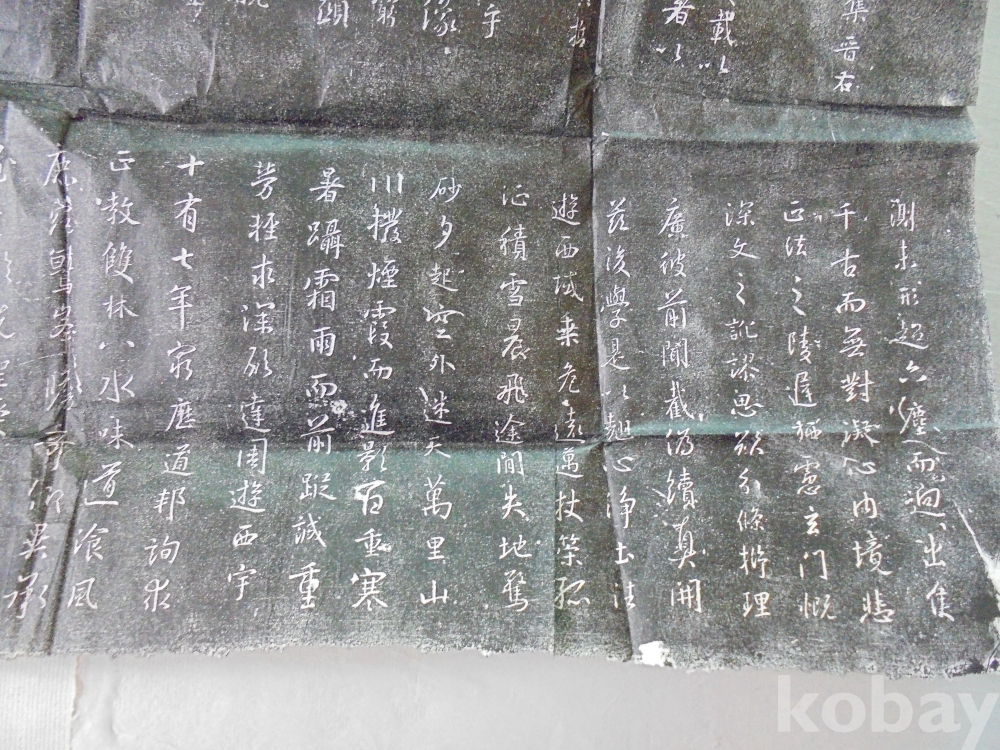 集晉右
載以
著以
手
測未形超六塵而迥出隻
千古而無對凝心內境悲
正法之陵遲栖慮玄門慨
深文之訛謬思欲分條析理
廣彼前聞截偽續真開
茲後學是以翹心淨土往
遊西域乘危遠邁杖策孤
征積雪晨飛途閒失地驚
砂夕起空外迷天萬里山
川撥煙霞而進影百重寒
暑躡霜雨而前蹤誠重
勞輕求深願達周遊西宇
十有七年窮歷道邦詢求
正教雙林八水味道飡風
鹿菀鷲峯瞻奇仰異承
kobay